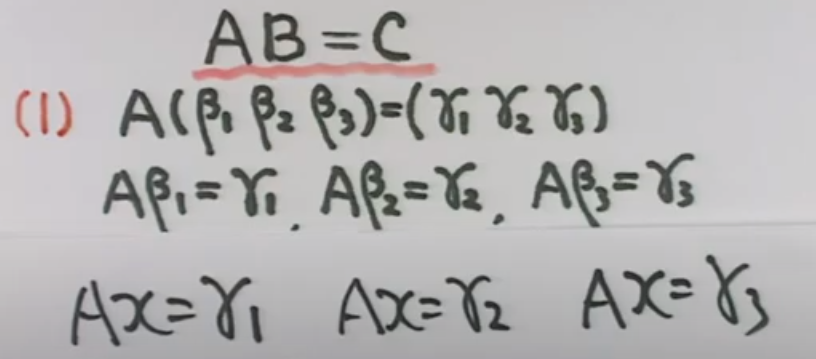 AB=C
(1) A(β₁ β₂ β₃)=(γ₁ γ₂ γ₃)
Aβ₁=γ₁, Aβ₂=γ₂, Aβ₃=γ₃
Ax=γ₁ Ax=γ₂ Ax=γ₃